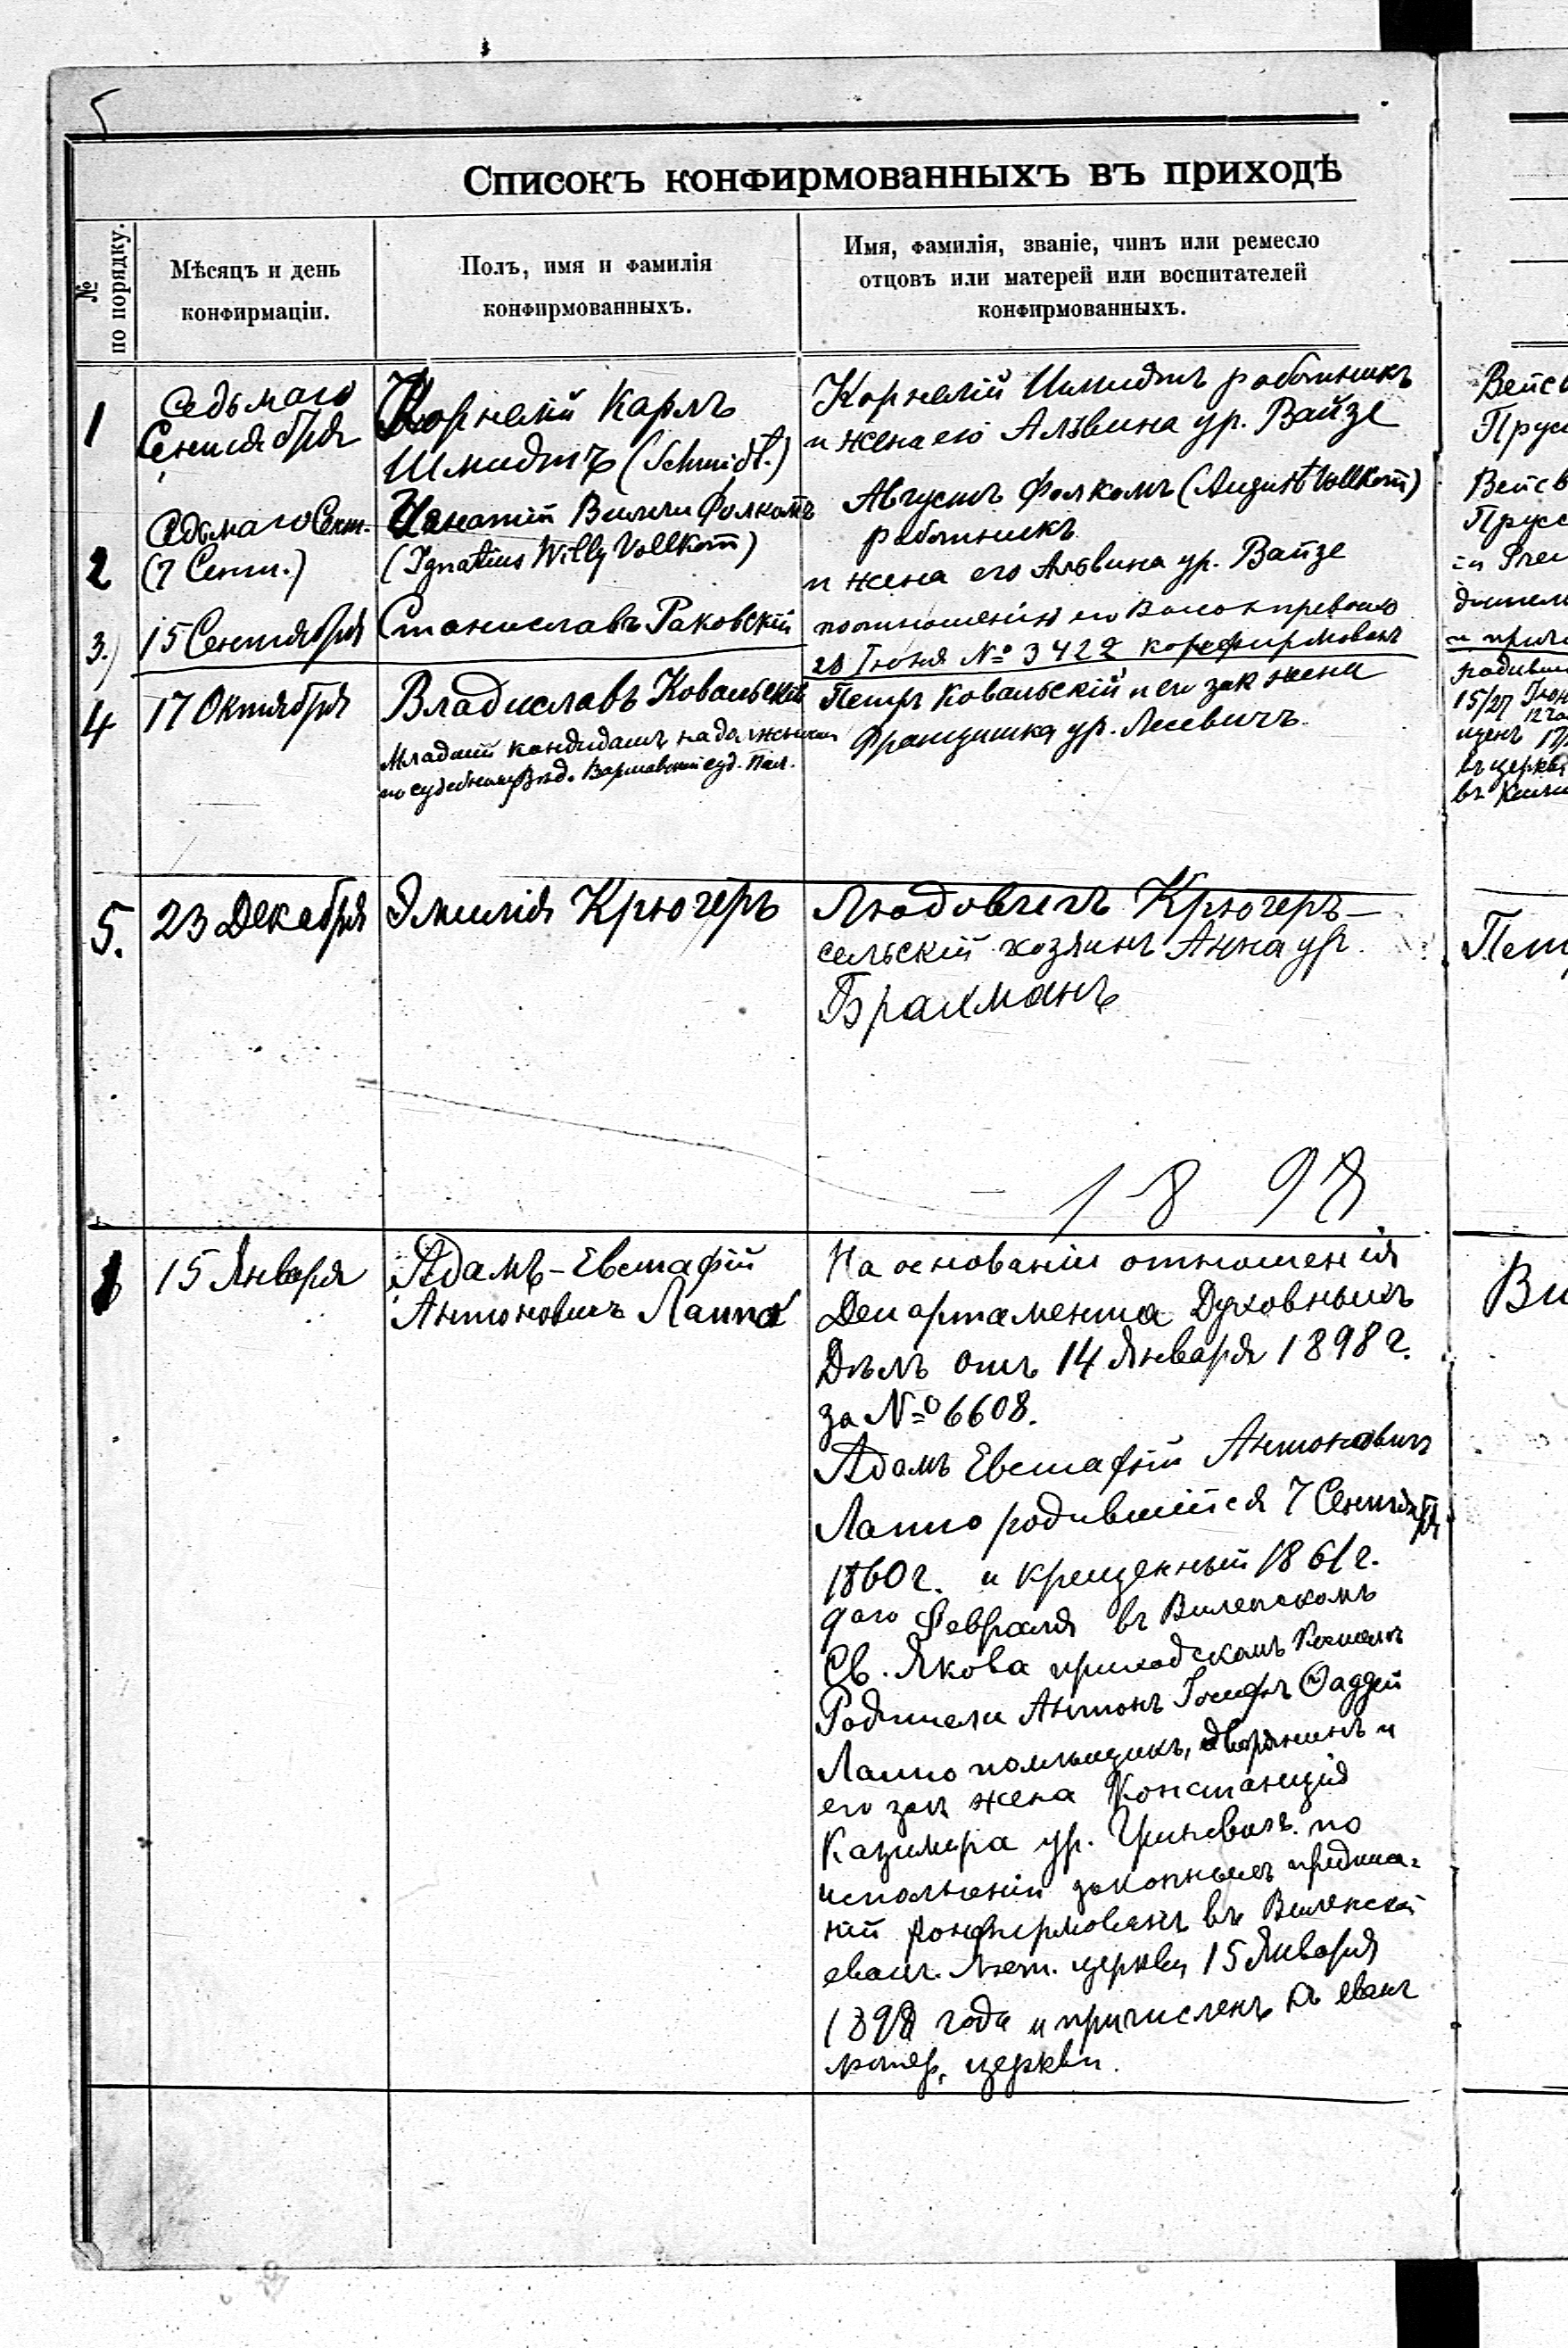 5
Списокъ конфирмованныхъ въ приходѣ
№ по порядку.
Мѣсяцъ и день
конфирмаціи.
Полъ, имя и фамилія
конфирмованныхъ.
Имя, фамилія, званіе, чинъ или ремесло
отцовъ или матерей или воспитателей
конфирмованныхъ.
1
Седьмаго
Сентября
Корнелій Карлъ
Шмидтъ (Schmidt.)
Корнелій Шмидтъ работникъ
и жена его Альвина ур. Вайзе
2
Седьмаго Сент.
(7 Сент.)
Игнатій Вилли Фолкомъ
(Ignatius Willy Vollkom)
Августъ Фолкомъ (August Vollkom)
работникъ
и жена его Альвина ур. Вайзе
3.)
15 Сентября
Станиславъ Раковскій
по отношенію его
28 Іюня № 3422 конфирмованъ
4
17 Октября
Владиславъ Ковальскій
Младшій кандидатъ на должности
по судебному Вѣд. Варшавской суд. Пал.
Петръ Ковальскій и его зак жены
Францишка ур. Лисевичъ.
5.
23 Декабря
Эмилія Крюгеръ
Людовигъ Крюгеръ —
сельскій хозяинъ Анна ур.
Брахманъ
1898
1
15 Января
Адамъ-Евстафій
Антоновичъ Лаппо
На основаніи отношенія
Департамента Духовныхъ
Дѣлъ отъ 14 Января 1898 г.
за № 6608.
Адамъ Евстафій Антоновичъ
Лаппо родившійся 7 Сентября
1860 г. и крещенный 1861 г.
9ого Февраля въ Виленскомъ
Св. Якова приходскомъ Костелѣ
Родители Антонъ Іосифъ Ѳаддей
Лаппо помѣщикъ, дворянинъ и
его зак жена Констанція
Казимира ур. по
исполненіи законныхъ предписа=
ній конфирмованъ въ Виленской
еванг. Лют. церкви 15 Января
1898 года и причисленъ къ еванг
лютер. церкви.
Прус
Вейсв
Прусс
15/27
12 ча
въ церкви
Пет
Ви